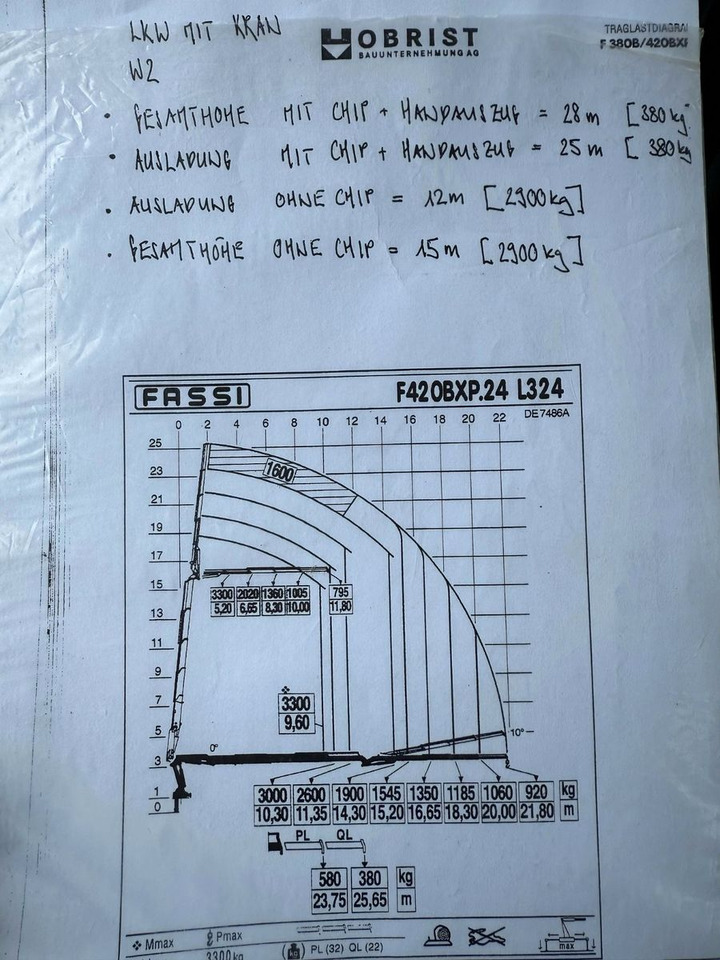 LKW MIT KRAN
W2
OBRIST
BAUUNTERNEHMUNG AG
TRAGLASTDIAGRA
F 380B/420BXP
• GESAMTHÖHE MIT CHIP + HANDAUSZUG = 28 m [380 kg
• AUSLADUNG MIT CHIP + HANDAUSZUG = 25 m [380 kg
• AUSLADUNG OHNE CHIP = 12m [2900 kg]
• GESAMTHÖHE OHNE CHIP = 15 m [2900 kg]
FASSI F420BXP.24 L324
DE7486A
0 2 4 6 8 10 12 14 16 18 20 22
25
23
1600
21
19
17
15
3300 2020 1360 1005 795
5,20 6,65 8,30 10,00 11,80
13
11
9
7
3300
9,60
5
10°
0°
3
1
0
3000 2600 1900 1545 1350 1185 1060 920 kg
10,30 11,35 14,30 15,20 16,65 18,30 20,00 21,80 m
PL QL
580 380 kg
23,75 25,65 m
Mmax Pmax
3300 kg
PL (32) QL (22)
max